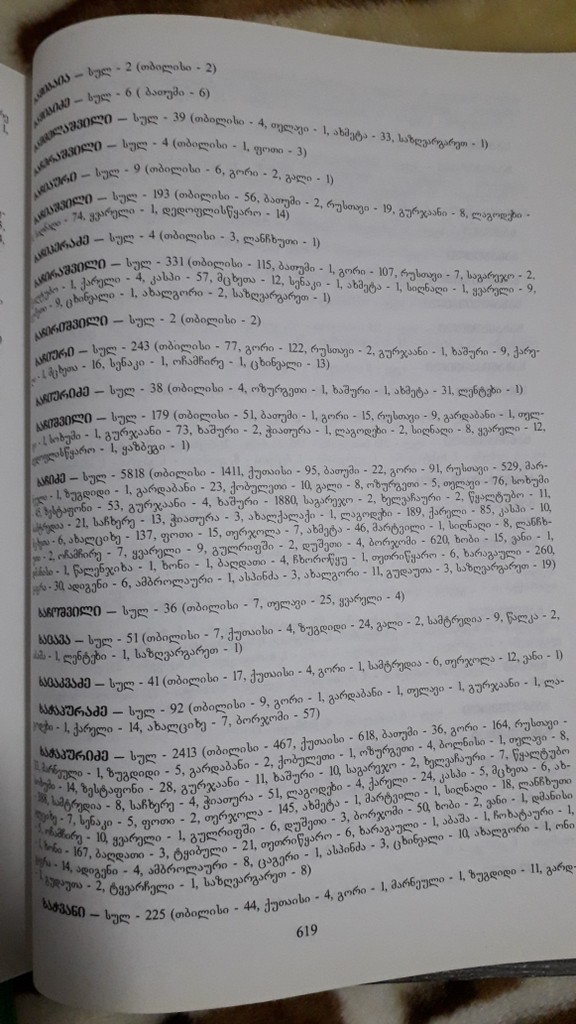 – სულ - 2 (თბილისი - 2)
– სულ - 6 ( ბათუმი - 6)
– სულ - 39 (თბილისი - 4, თელავი - 1, ახმეტა - 33, საზღვარგარეთ - 1)
– სულ - 4 (თბილისი - 1, ფოთი - 3)
– სულ - 9 (თბილისი - 6, გორი - 2, გალი - 1)
– სულ - 193 (თბილისი - 56, ბათუმი - 2, რუსთავი - 19, გურჯაანი - 8, ლაგოდეხი -
- 74, ყვარელი - 1, დედოფლისწყარო - 14)
– სულ - 4 (თბილისი - 3, ლანჩხუთი - 1)
– სულ - 331 (თბილისი - 115, ბათუმი - 1, გორი - 107, რუსთავი - 7, საგარეჯო - 2,
- 1, ქარელი - 4, კასპი - 57, მცხეთა - 12, სენაკი - 1, ახმეტა - 1, სიღნაღი - 1, ყვარელი - 9,
- 9, ცხინვალი - 1, ახალგორი - 2, საზღვარგარეთ - 1)
– სულ - 2 (თბილისი - 2)
– სულ - 243 (თბილისი - 77, გორი - 122, რუსთავი - 2, გურჯაანი - 1, ხაშური - 9, ქარე-
- 1, მცხეთა - 16, სენაკი - 1, ოჩამჩირე - 1, ცხინვალი - 13)
– სულ - 38 (თბილისი - 4, ოზურგეთი - 1, ხაშური - 1, ახმეტა - 31, ლენტეხი - 1)
– სულ - 179 (თბილისი - 51, ბათუმი - 1, გორი - 15, რუსთავი - 9, გარდაბანი - 1, თელ-
- 1, სოხუმი - 1, გურჯაანი - 73, ხაშური - 2, ჭიათურა - 1, ლაგოდეხი - 2, სიღნაღი - 8, ყვარელი - 12,
- 1, ყაზბეგი - 1)
ხაჩიძე – სულ - 5818 (თბილისი - 1411, ქუთაისი - 95, ბათუმი - 22, გორი - 91, რუსთავი - 529, მარ-
- 1, ზუგდიდი - 1, გარდაბანი - 23, ქობულეთი - 10, გალი - 8, ოზურგეთი - 5, თელავი - 76, სოხუმი
ზესტაფონი - 53, გურჯაანი - 4, ხაშური - 1880, საგარეჯო - 2, ხელვაჩაური - 2, წყალტუბო - 11,
- 21, საჩხერე - 13, ჭიათურა - 3, ახალქალაქი - 1, ლაგოდეხი - 189, ქარელი - 85, კასპი - 10,
- 6, ახალციხე - 137, ფოთი - 15, თერჯოლა - 7, ახმეტა - 46, მარტვილი - 1, სიღნაღი - 8, ლანჩხ-
- 2, ოჩამჩირე - 7, ყვარელი - 9, გულრიფში - 2, დუშეთი - 4, ბორჯომი - 620, ხობი - 15, ვანი - 1,
- 1, წალენჯიხა - 1, ხონი - 1, ბაღდათი - 4, ჩხოროწყუ - 1, თეთრიწყარო - 6, ხარაგაული - 260,
- 30, ადიგენი - 6, ამბროლაური - 1, ასპინძა - 3, ახალგორი - 11, გუდაუთა - 3, საზღვარგარეთ - 19)
ხაჩოშვილი – სულ - 36 (თბილისი - 7, თელავი - 25, ყვარელი - 4)
ხაცავა – სულ - 51 (თბილისი - 7, ქუთაისი - 4, ზუგდიდი - 24, გალი - 2, სამტრედია - 9, წალკა - 2,
- 1, ლენტეხი - 1, საზღვარგარეთ - 1)
ხაცაცვაძე – სულ - 41 (თბილისი - 17, ქუთაისი - 4, გორი - 1, სამტრედია - 6, თერჯოლა - 12, ვანი - 1)
ხაჭაპურაძე – სულ - 92 (თბილისი - 9, გორი - 1, გარდაბანი - 1, თელავი - 1, გურჯაანი - 1, ლა-
გოდეხი - 1, ქარელი - 14, ახალციხე - 7, ბორჯომი - 57)
ხაჭაპურიძე – სულ - 2413 (თბილისი - 467, ქუთაისი - 618, ბათუმი - 36, გორი - 164, რუსთავი -
მარნეული - 1, ზუგდიდი - 5, გარდაბანი - 2, ქობულეთი - 1, ოზურგეთი - 4, ბოლნისი - 1, თელავი - 8,
- 14, ზესტაფონი - 28, გურჯაანი - 11, ხაშური - 10, საგარეჯო - 2, ხელვაჩაური - 7, წყალტუბო
სამტრედია - 8, საჩხერე - 4, ჭიათურა - 51, ლაგოდეხი - 4, ქარელი - 24, კასპი - 5, მცხეთა - 6, ახ-
- 7, სენაკი - 5, ფოთი - 2, თერჯოლა - 145, ახმეტა - 1, მარტვილი - 1, სიღნაღი - 18, ლანჩხუთი
ოჩამჩირე - 10, ყვარელი - 1, გულრიფში - 6, დუშეთი - 3, ბორჯომი - 50, ხობი - 2, ვანი - 1, დმანისი
ხონი - 167, ბაღდათი - 3, ტყიბული - 21, თეთრიწყარო - 6, ხარაგაული - 1, აბაშა - 1, ჩოხატაური - 1,
- 14, ადიგენი - 4, ამბროლაური - 8, ცაგერი - 1, ასპინძა - 3, ცხინვალი - 10, ახალგორი - 1, ონი
გუდაუთა - 2, ტყვარჩელი - 1, საზღვარგარეთ - 8)
ხაჭვანი – სულ - 225 (თბილისი - 44, ქუთაისი - 4, გორი - 1, მარნეული - 1, ზუგდიდი - 11, გარდ-
619